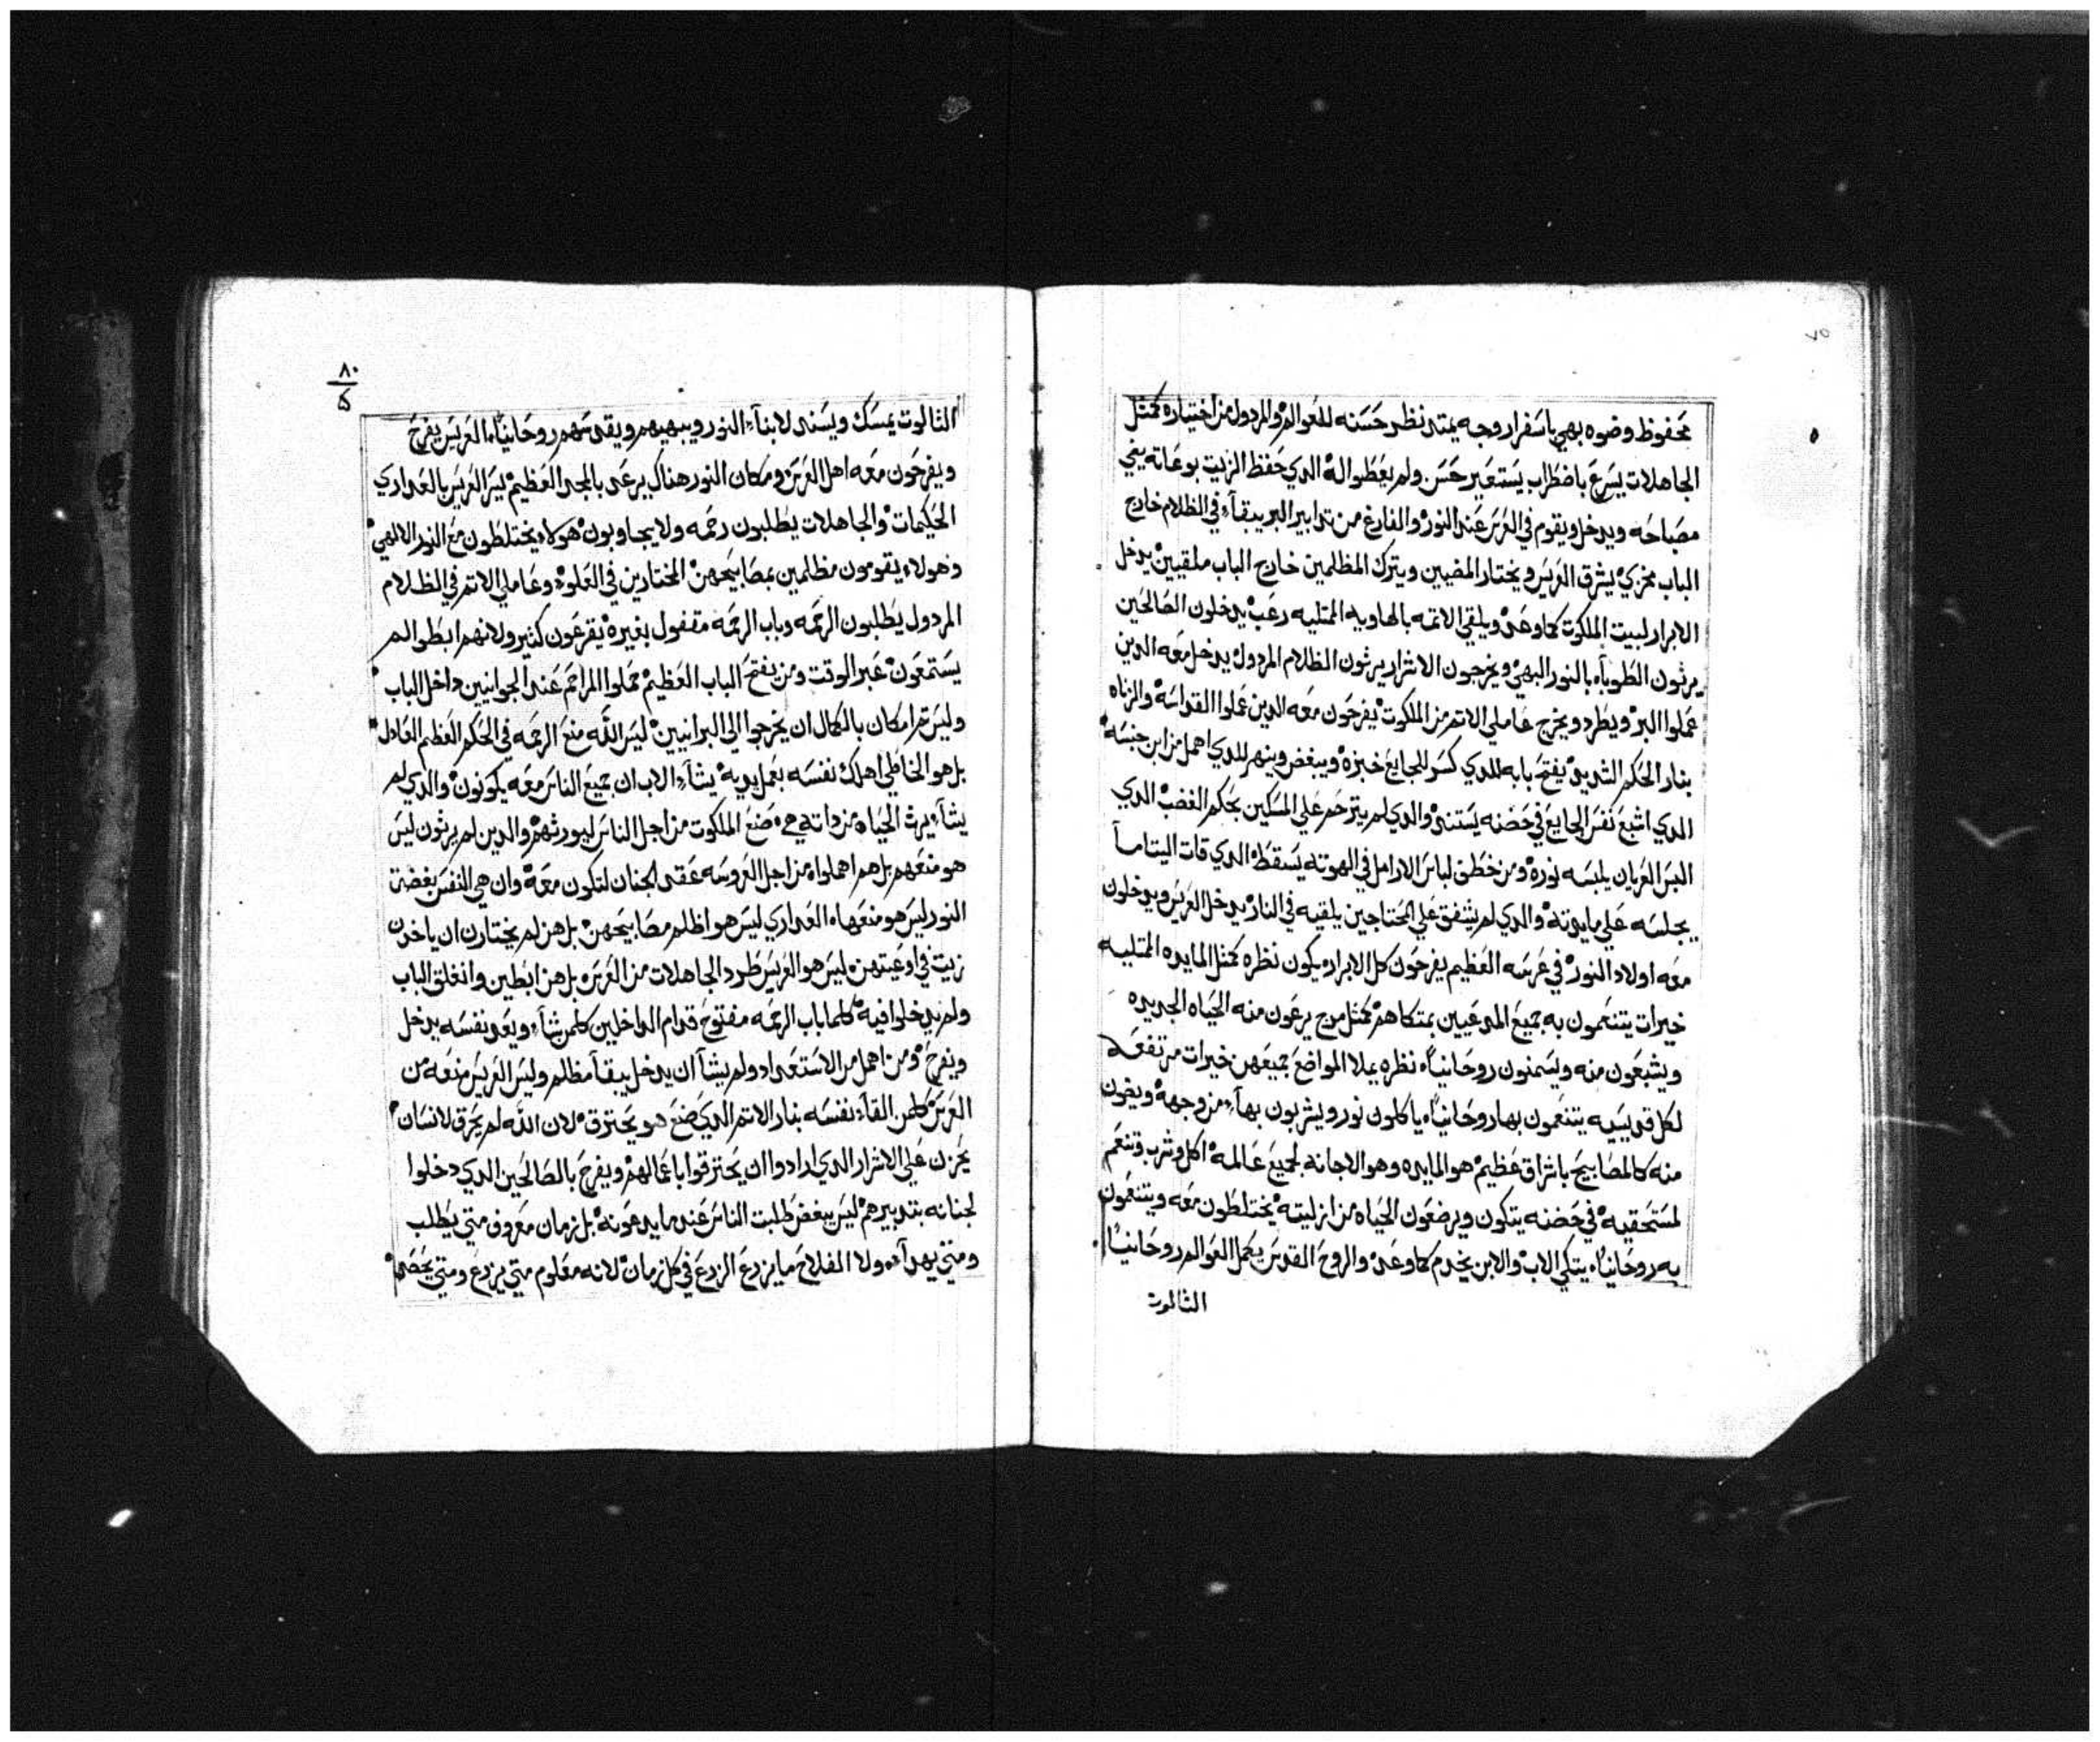 ٧٥
محفوظ وضوه بهي باسفرار وجه يمتد نظر حسنه للعوالم والمردول من اختياره كمثل
الجاهلات يسرع باضطراب يستعير حسن ولم يعطوا له الدي حفظ الزيت بوعاته يضي
مصباحه ويدخل ويقوم في العرس عند النور والفارغ من تدابير البر يبقآء في الظلام خارج
الباب مخزي يشرق العريس ويختار المضيين ويترك المظلمين خارج الباب ملقيين يدخل
الابرار لبيت الملكوت كما وعد ويلقي الاتمه بالهاويه الممتليه رعب يدخلون الصالحين
يرثون الطوبآء بالنور البهي ويخرجون الاشرار يرثون الظلام المردول يدخل معه الدين
عملوا البر ويطرد ويخرج عاملي الاتم من الملكوت يفرحون معه الدين عملوا القداسه والزناه
بنار الحكم الشديد يفتح بابه للدي كسر للجايع خبزه ويبغض وينهر للدي اهمل من ابن جنسه
الدي اشبع نفس الجايع في حضنه يستند والدي لم يترحم علي المسكين بحكم الغضب الدي
البس العريان يلبسه نوره ومن خطف لباس الارامل في الهوته يسقط الدي قات اليتاما
يجلسه علي مايدته والدي لم يشفق علي المحتاجين يلقيه في النار يدخل العريس ويدخلون
معه اولاد النور في عرسه العظيم يفرحون كل الابرار يكون نظره كمثل المايده الممتليه
خيرات يتنعمون به جميع المدعيين بمتكاهم كمثل مرج يرعون منه الحياه الجديده
ويشبعون منه ويسمنون روحانياً نظره يملا المواضع جميعهن خيرات مرتفعه
لكل قديسيه يتنعمون بها روحانياً ياكلون نور ويشربون بهآء من وجهه ويضون
منه كالمصابيح باشراق عظيم هو المايده وهو الاجانه لجميع عالمه اكل وشرب وتنعم
لمستحقيه في حضنه يتكون ويرضعون الحياه من ازليته يختلطون معه ويتنعمون
به روحانياً يتكي الاب والابن يخدم كما وعد والروح القدس يكمل العوالم روحانياً
الثالوت
٨٠
الثالوت يمسك ويسند لابنآء النور ويبهيهم ويقدسهم روحانياً العريس يفرح
ويفرحون معه اهل العرس ومكان النور هناك يرعد بالمجد العظيم يسر العريس بالعداري
الحكيمات والجاهلات يطلبون رحمه ولا يجاوبون هولاء يختلطون مع النور الالهي
وهولاء يقومون مظلمين بمصابيحهن المختارين في العلو وعاملي الاتم في الظلام
المردول يطلبون الرحمه وباب الرحمه مقفول بغيره يقرعون كثير ولانهم ابطوا لم
يستمعون عبر الوقت ومن يفتح الباب العظيم حملوا المراحم عند الجوانيين داخل الباب
وليس تم امكان بالكمال ان يخرجوا الي البرانيين ليس الله منع الرحمه في الحكم العظيم العادل
بل هو الخاطي اهلك نفسه بعمل يديه يشآء الاب ان جميع الناس معه يكونون والدي لم
يشآء يرث الحياه من داته صنع الملكوت من اجل الناس ليورثهم والدين لم يرثون ليس
هو منعهم بل هم اهملوا من اجل العروسه عقد الجنان لتكون معه وان هي النفس بغضت
النور ليس هو منعها العداري ليس هو اظلم مصابيحهن بل هن لم يختارن ان ياخدن
زيت في اوعيتهن ليس هو العريس طرد الجاهلات من العرس بل هن ابطين وانغلق الباب
ولم يدخلوا فيه كلما باب الرحمه مفتوح قدام الداخلين كلمن يشآء ويعد نفسه يدخل
ويفرح ومن اهمل من الاستعداد ولم يشآ ان يدخل يبقآ مظلم وليس العريس منعه من
العرس كلمن القآء نفسه بنار الاتم الدي صنع هو يحترق لان الله لم يحرق لانسان
يحزن علي الاشرار الدي ارادوا ان يحترقوا باعمالهم ويفرح بالصالحين الدي دخلوا
لجنانه بتدبيرهم ليس يبغض طلبت الناس عند ما يدعونه بل زمان معروف متي يطلب
ومتي يهدآء ولا الفلاح ما يزرع الزرع في كل زمان لانه معلوم متي يزرع ومتي يحصد